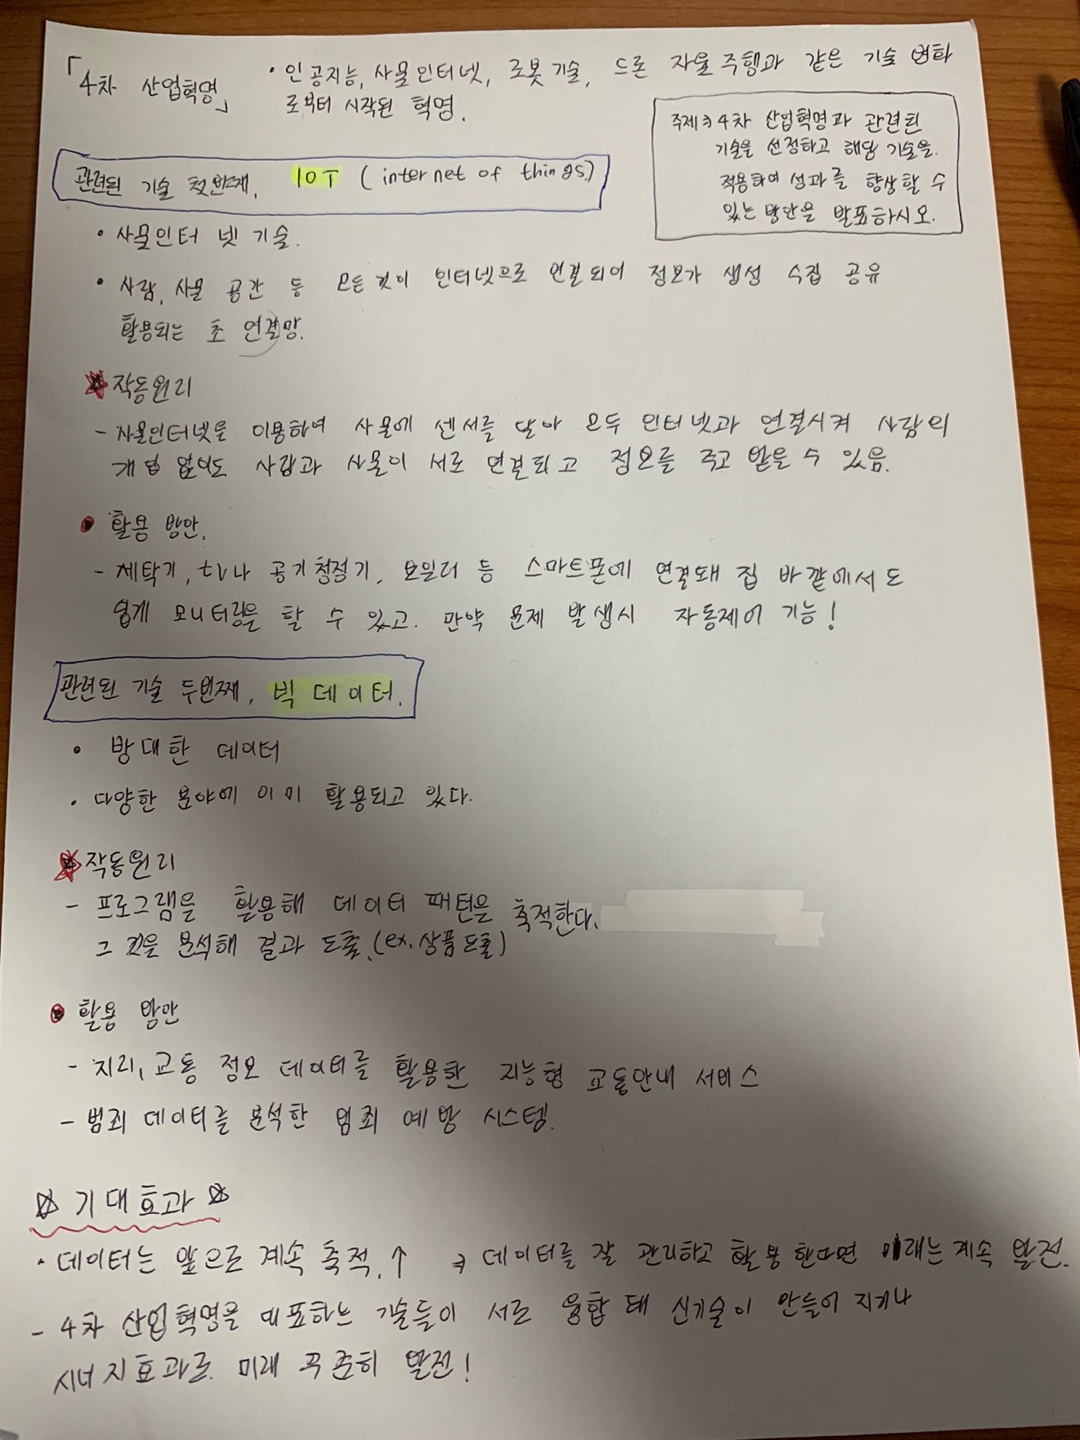 「4차 산업혁명」
• 인공지능, 사물인터넷, 로봇기술, 드론 자율주행과 같은 기술 변화
로부터 시작된 혁명.
주제⇒4차 산업혁명과 관련된
기술을 선정하고 해당 기술을
적용하여 성과를 향상할 수
있는 방안을 발표하시오.
관련된 기술 첫번째, IOT (internet of things.)
• 사물인터넷 기술.
• 사람, 사물 공간 등 모든 것이 인터넷으로 연결되어 정보가 생성 수집 공유
활용되는 초 연결망.
작동원리
- 사물인터넷을 이용하여 사물에 센서를 달아 모두 인터넷과 연결시켜 사람의
개입 없이도 사람과 사물이 서로 연결되고 정보를 주고 받을 수 있음.
• 활용 방안.
- 세탁기, tv나 공기청정기, 보일러 등 스마트폰에 연결돼 집 바깥에서도
쉽게 모니터링을 할 수 있고. 만약 문제 발생시 자동제어 기능!
관련된 기술 두번째, 빅 데이터.
• 방대한 데이터
• 다양한 분야에 이미 활용되고 있다.
작동원리
- 프로그램을 활용해 데이터 패턴을 축적한다.
그것을 분석해 결과 도출.(ex.상품도출)
• 활용 방안
- 지리, 교통 정보 데이터를 활용한 지능형 교통안내 서비스
- 범죄 데이터를 분석한 범죄 예방 시스템.
☆ 기대효과 ☆
• 데이터는 앞으로 계속 축적.↑ ⇒ 데이터를 잘 관리하고 활용한다면 미래는 계속 발전.
- 4차 산업혁명을 대표하는 기술들이 서로 융합 돼 신기술이 만들어 지거나
시너지효과로 미래 꾸준히 발전!